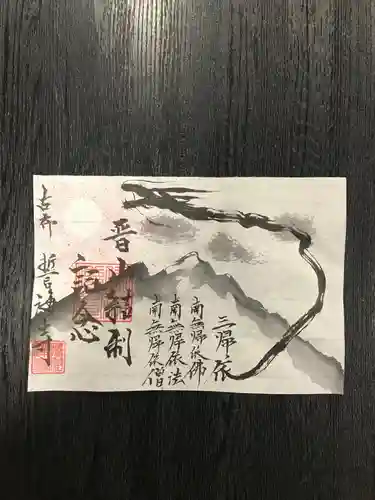 三帰依
南無帰依佛
南無帰依法
南無帰依僧
晋山結制
記念
古都
哲禅寺